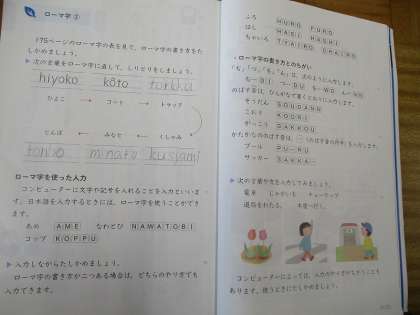 ローマ字 ②
175ページのローマ字の表を見て、ローマ字の書き方をた
しかめましょう。
▶ 次の言葉をローマ字に直して、しりとりをしましょう。
hiyoko kôto
ひよこ → コート → トラック
とんぼ ← みなと ← くしゃみ
tonbo minato kusyami
ローマ字を使った入力
コンピューターに文字や記号を入れることを入力といいま
す。日本語を入力するときには、ローマ字を使うことができ
ます。
あめ AME なわとび NAWATOBI
コップ KOPPU
▶ 入力しながらたしかめましょう。
ローマ字の書き方が二つある場合は、どちらのやり方でも
入力できます。
ふろ HURO FURO
はし HASI HASHI
ちゃいろ TYAIRO CHAIRO
ローマ字の書き方とのちがい
のばす音は、ひらがなで書くとおりに入力します。
そうだん SOUDANN
こおり KOORI
がっこう GAKKOU
プール PU-RU
サッカー SAKKA-
▶ 次の言葉や文を入力してみましょう。
コンピューターによっては、入力のやり方がちがうことも
あります。使うときにたしかめましょう。